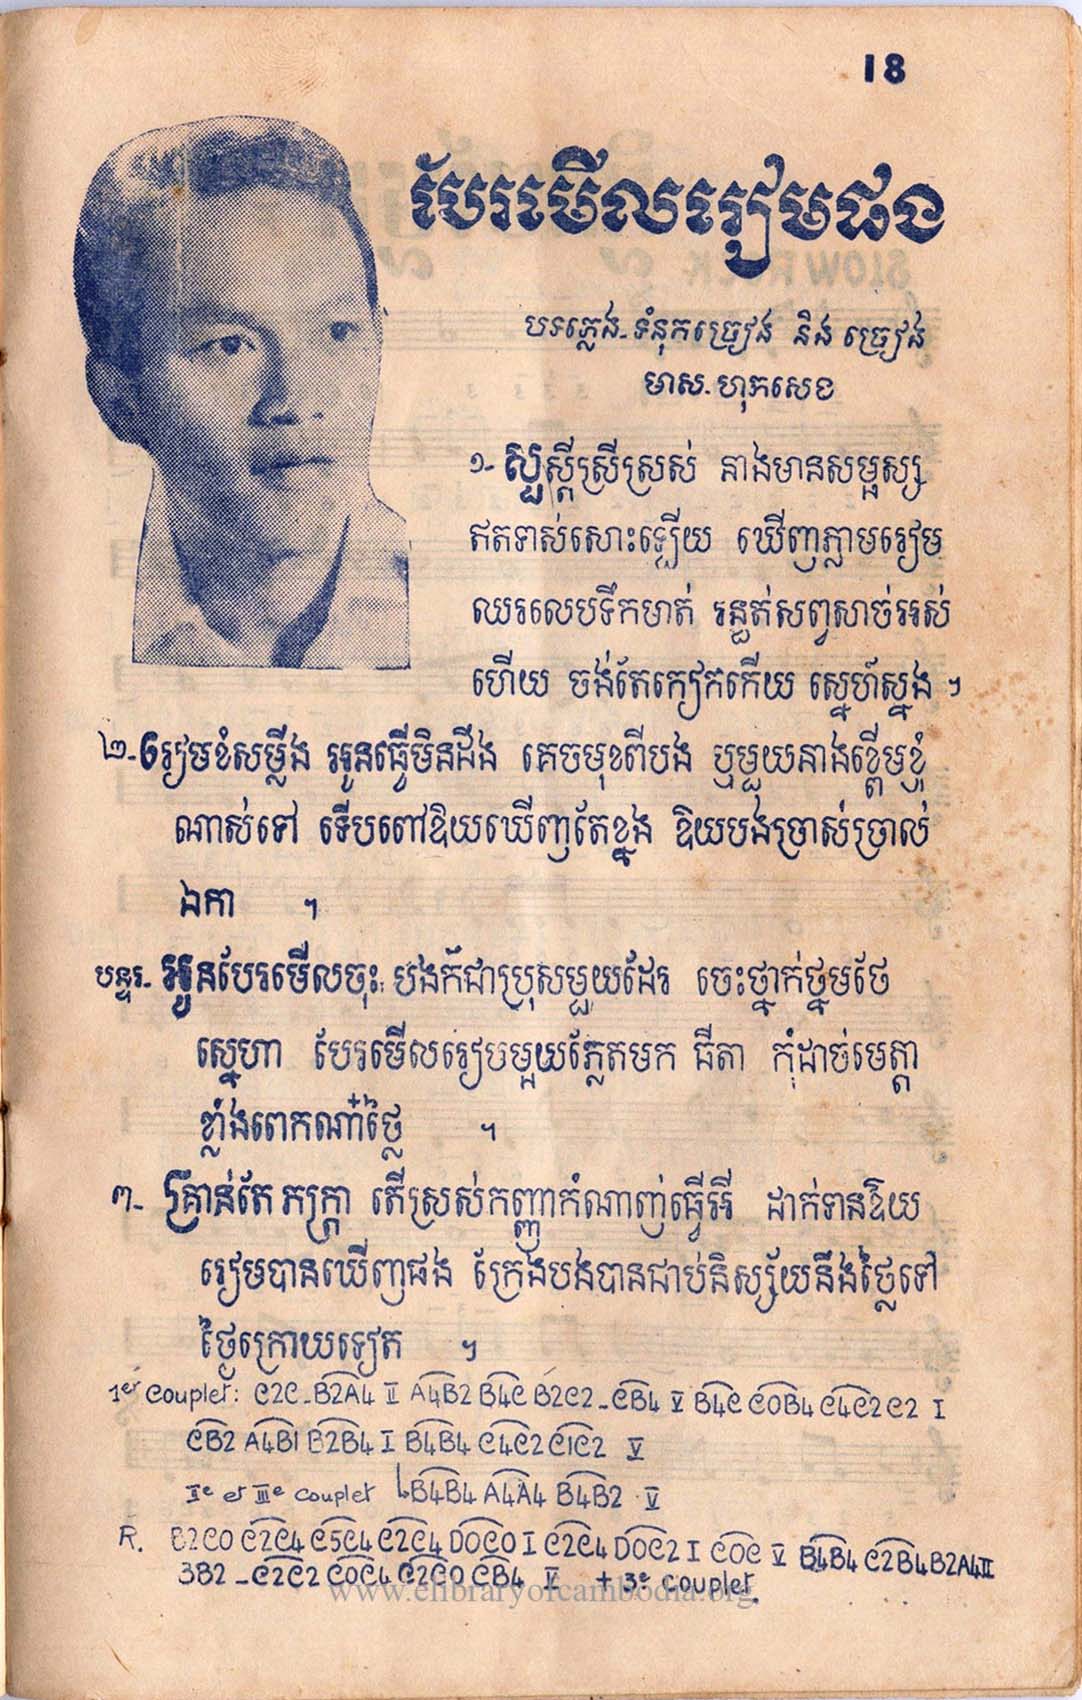 18
បែរមើលរៀមផង
បទភ្លេង-ទំនុកច្រៀង និង ច្រៀង
មាស-ហុកសេង
១- សួស្តីស្រីស្រស់ នាងមានសម្ផស្ស
ឥតទាស់សោះឡើយ ឃើញភ្លាមរៀម
ឈរលេបទឹកមាត់ រន្ធត់សព្វសាច់អស់
ហើយ ចង់តែកៀកកើយ ស្នេហ៍ស្នង ។
២-រៀមខំសម្លឹង អូនធ្វើមិនដឹង គេចមុខពីបង ឬមួយនាងខ្ពើមខ្ញុំ
ណាស់ទៅ ទើបពៅឱយឃើញតែខ្នង ឱយបងច្រាស់ច្រាល់
ឯកា ។
បន្ទរ- អូនបែរមើលចុះ បងក៏ជាប្រុសមួយដែរ ចេះថ្នាក់ថ្នមថែ
ស្នេហា បែរមើលរៀបមួយភ្លែតមក ធីតា កុំដាច់មេត្តា
ខ្លាំងពេកណាំថ្លៃ ។
៣- គ្រាន់តែ ភក្ត្រា តើស្រស់កញ្ញាកំណាញ់ធ្វើអី ដាក់ទានឱយ
រៀមបានឃើញផង ក្រែងបងបានជាប់និស្ស័យនឹងថ្លៃទៅ
ថ្ងៃក្រោយទៀត ។
1er Couplet: C2C-B2A4 II A4B2 B4C B2C2-CB4 V B4C C0B4 C4C2 C2 I
CB2 A4B1 B2B4 I B4B4 C4C2 C1C2 V
Ie et IIIe couplet B4B4 A4A4 B4B2 V
R. B2C0 C2C4 C5C4 C2C4 D0C0 I C2C4 D0C2 I C0C V B4B4 C2B4B2A4II
3B2-C2C2 C0C4 C2C0 CB4 V + 3e couplet.
www.elibraryofcambodia.org